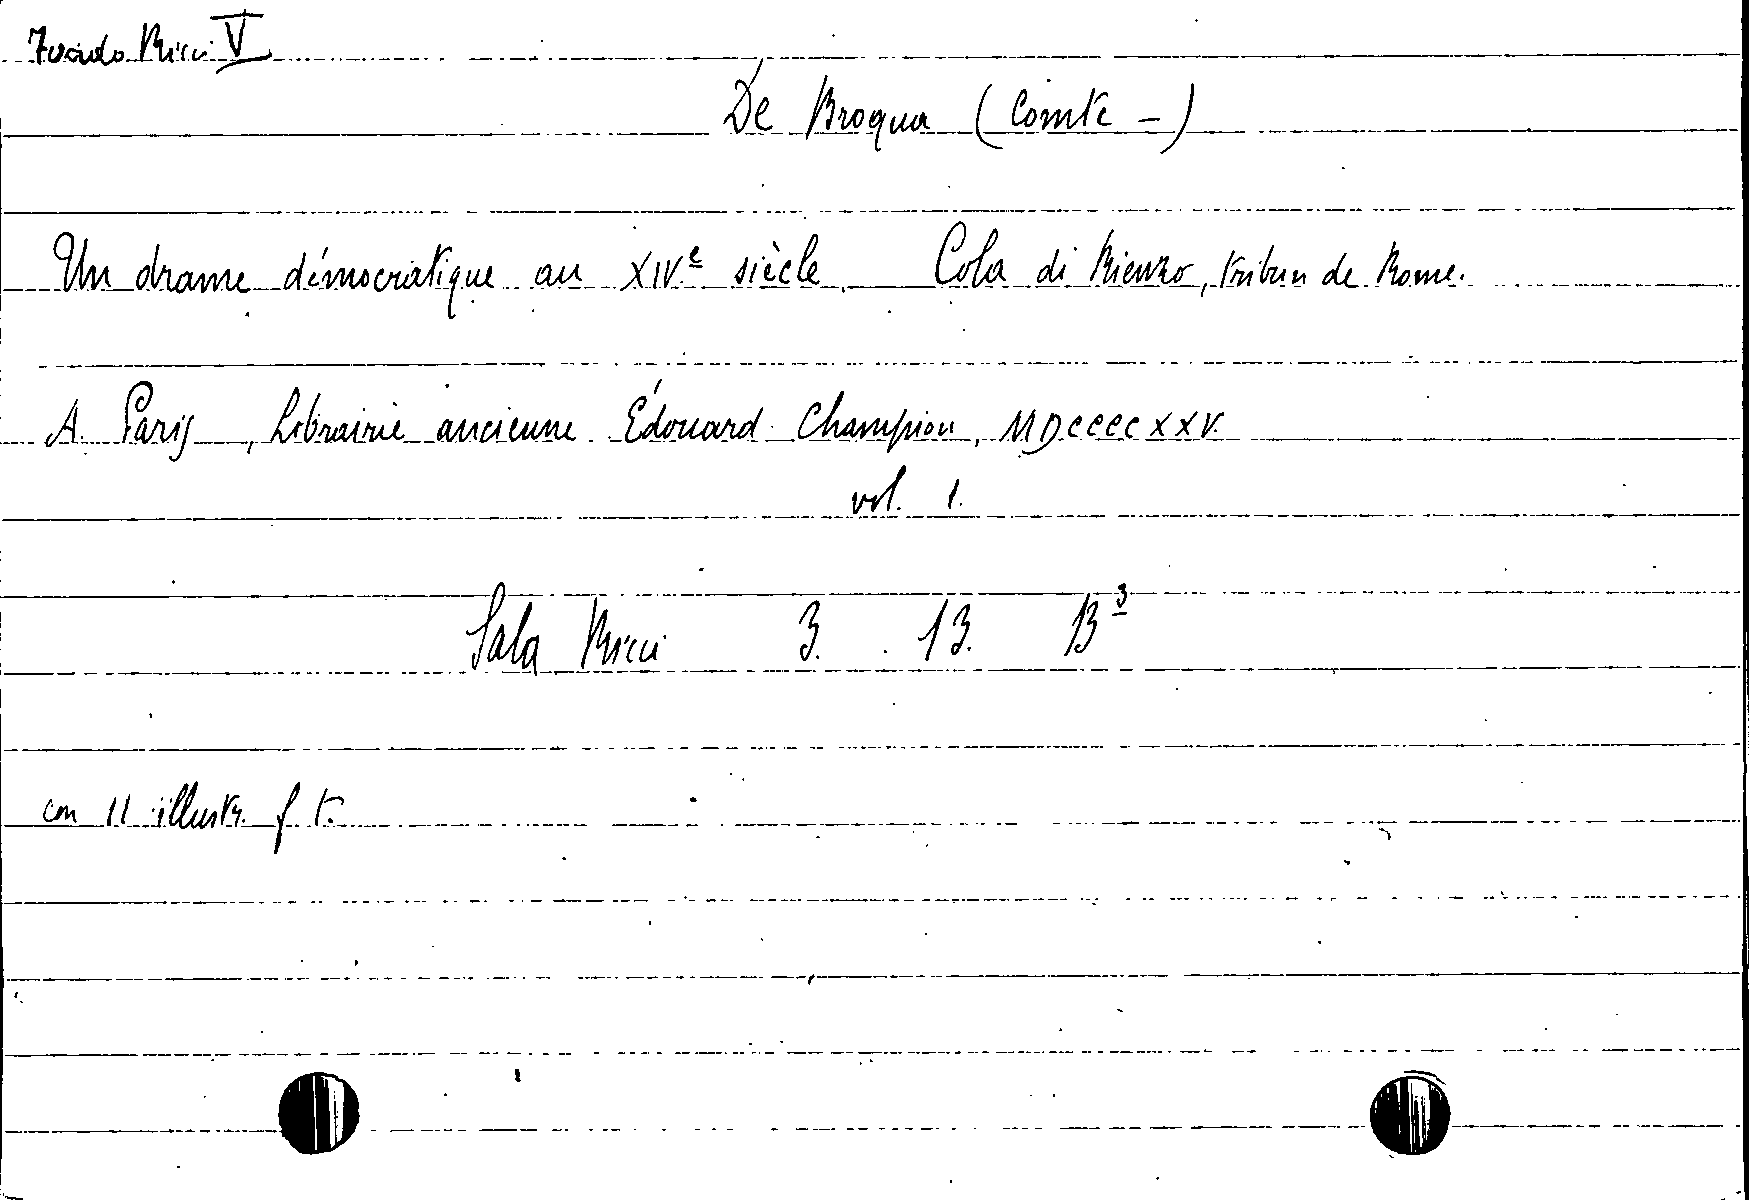 Fondo Ricci V
De Broqua (Comte -)
Un drame démocratique au XIVe siècle. Cola di Rienzo, tribun de Rome.
A Paris, Librairie ancienne Édouard Champion, MDCCCCXXV.
vol. 1.
Sala Ricci 3. 13. B3
con 11 illustr. f t.